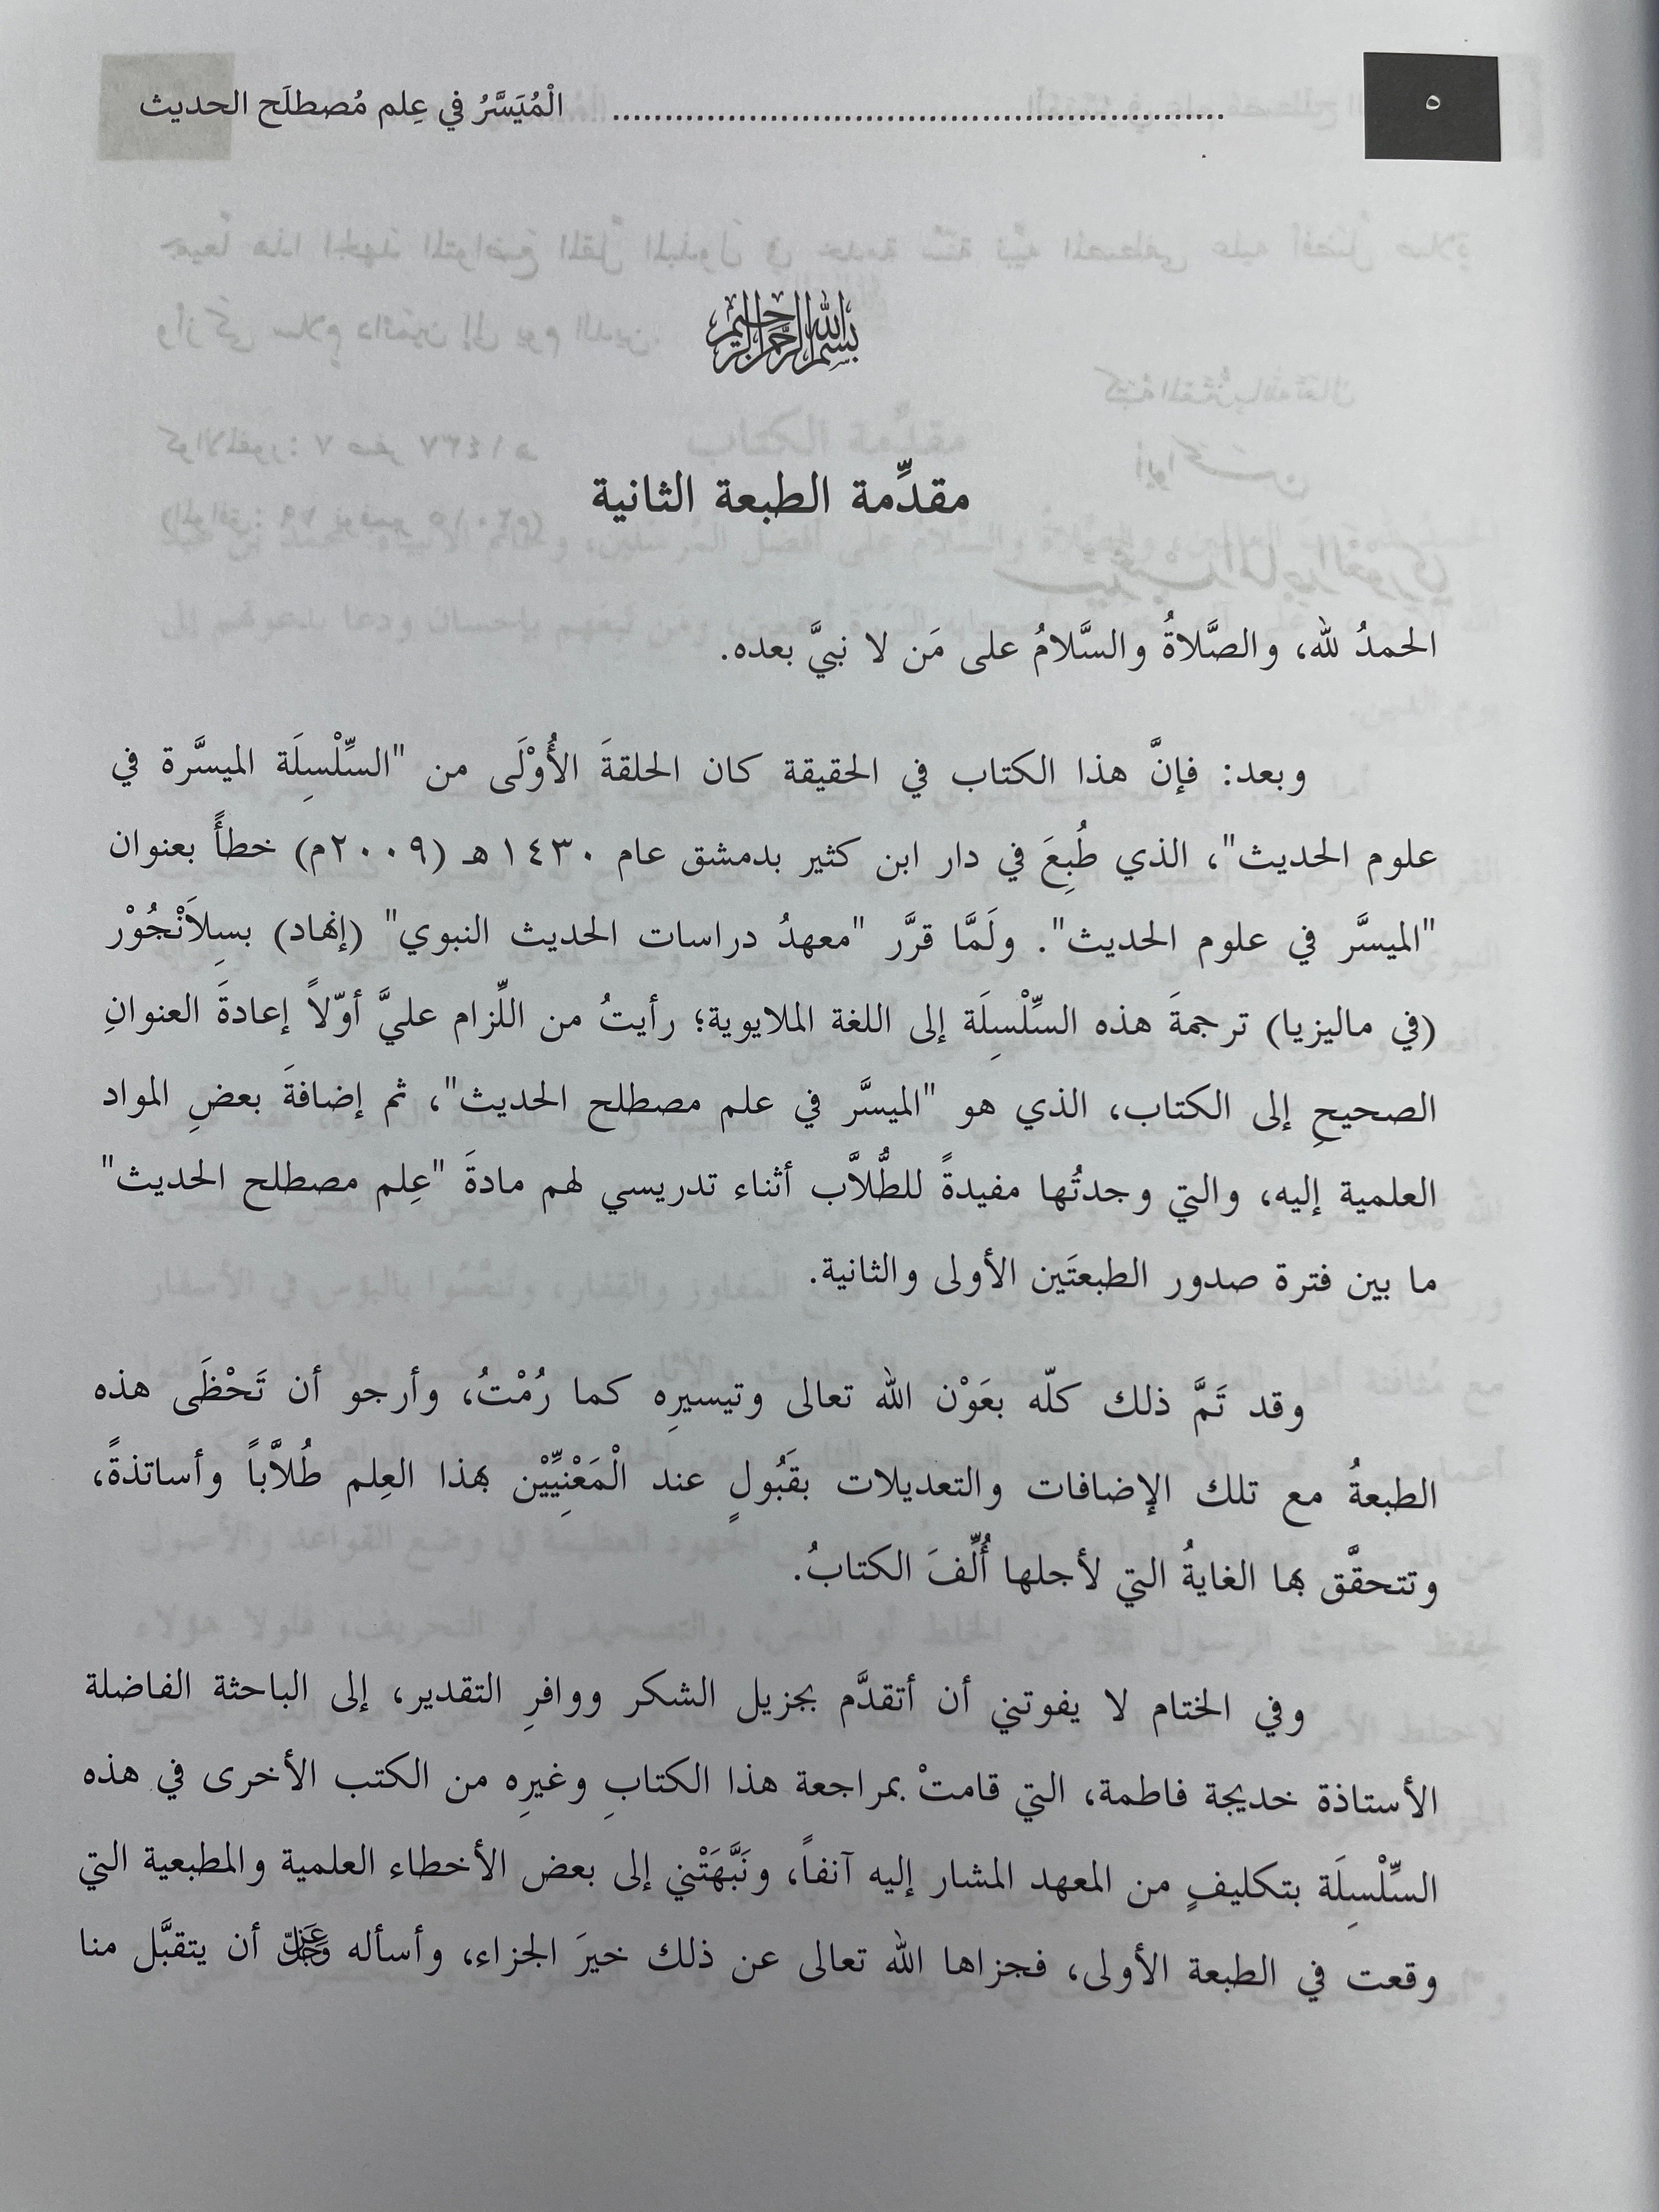 ٥ ........ الْمُيَسَّرُ في عِلم مُصطلَح الحديث
بسم الله الرحمن الرحيم
مقدِّمة الطبعة الثانية
الحمدُ لله، والصَّلاةُ والسَّلامُ على مَن لا نبيَّ بعده.
وبعد: فإنَّ هذا الكتاب في الحقيقة كان الحلقةَ الأُوْلَى من "السِّلْسِلَة الميسَّرة في
علوم الحديث"، الذي طُبِعَ في دار ابن كثير بدمشق عام ١٤٣٠هـ (٢٠٠٩م) خطأً بعنوان
"الميسَّر في علوم الحديث". ولَمَّا قرَّر "معهدُ دراسات الحديث النبوي" (إنهاد) بسِلاَنْجُوْر
(في ماليزيا) ترجمةَ هذه السِّلْسِلَة إلى اللغة الملايوية؛ رأيتُ من اللِّزام عليَّ أوّلاً إعادةَ العنوانِ
الصحيحِ إلى الكتاب، الذي هو "الميسَّر في علم مصطلح الحديث"، ثم إضافةَ بعضِ المواد
العلمية إليه، والتي وجدتُها مفيدةً للطُّلاَّب أثناء تدريسي لهم مادةَ "عِلم مصطلح الحديث"
ما بين فترة صدور الطبعتَين الأولى والثانية.
وقد تَمَّ ذلك كلّه بعَوْن الله تعالى وتيسيرِه كما رُمْتُ، وأرجو أن تَحْظَى هذه
الطبعةُ مع تلك الإضافات والتعديلات بقَبُولٍ عند الْمَعْنِيِّيْن بهذا العِلم طُلاَّباً وأساتذةً،
وتتحقَّق بها الغايةُ التي لأجلها أُلِّفَ الكتابُ.
وفي الختام لا يفوتني أن أتقدَّم بجزيل الشكر ووافرِ التقدير، إلى الباحثة الفاضلة
الأستاذة خديجة فاطمة، التي قامتْ بمراجعة هذا الكتابِ وغيرِه من الكتب الأخرى في هذه
السِّلْسِلَة بتكليفٍ من المعهد المشار إليه آنفاً، ونَبَّهَتْني إلى بعض الأخطاء العلمية والمطبعية التي
وقعت في الطبعة الأولى، فجزاها الله تعالى عن ذلك خيرَ الجزاء، وأسأله عَزَّ وَجَلَّ أن يتقبَّل منا